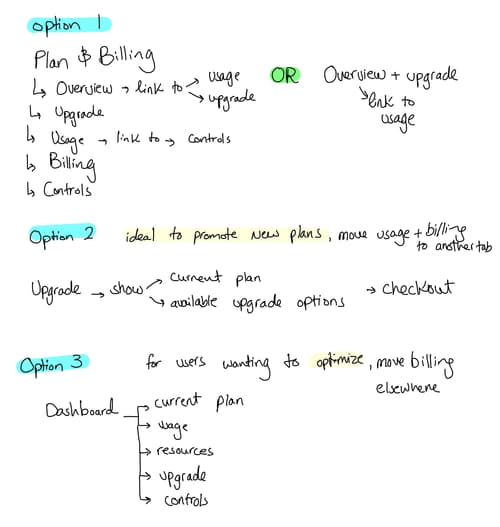 option 1
Plan & Billing
↳ Overview → link to → usage
→ upgrade
OR
Overview + upgrade
↘ link to
usage
↳ Upgrade
↳ Usage → link to → controls
↳ Billing
↳ Controls
Option 2 ideal to promote new plans, move usage + billing
to another tab
Upgrade → show → current plan
→ available upgrade options → checkout
Option 3 for users wanting to optimize, move billing
elsewhere
Dashboard → current plan
→ usage
→ resources
→ upgrade
→ controls